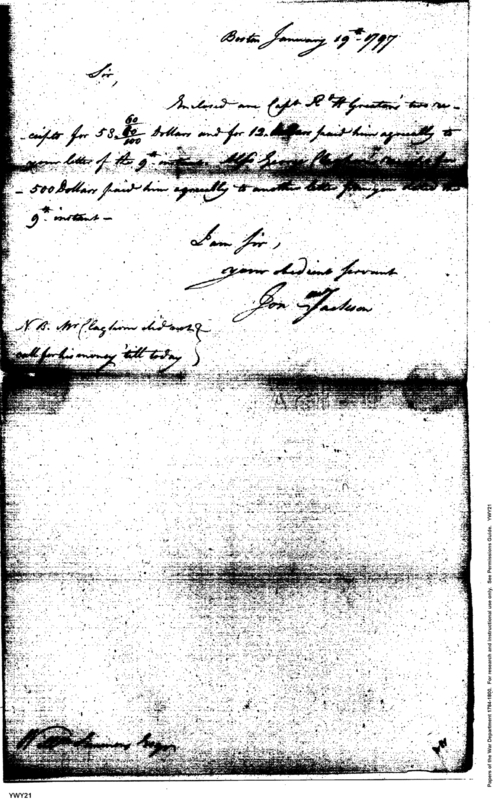 Boston January 19th 1797
Sir,
Enclosed are Capt R H Greaton's two re-
-ceipts for 58 60/100 Dollars and for 12 Dollars paid him agreeably to
your letter of the 9th instant Also George Claghorn's receipt for
500 Dollars paid him agreeably to another letter from you dated the
9th instant -
I am Sir,
your obedient servant
Jonn Jackson
N B. Mr Claghorn did not
call for his money till today
Wm Simmons Esqr
YWY21
Papers of the War Department 1784-1800. For research and instructional use only. See Permissions Guide. YWY21